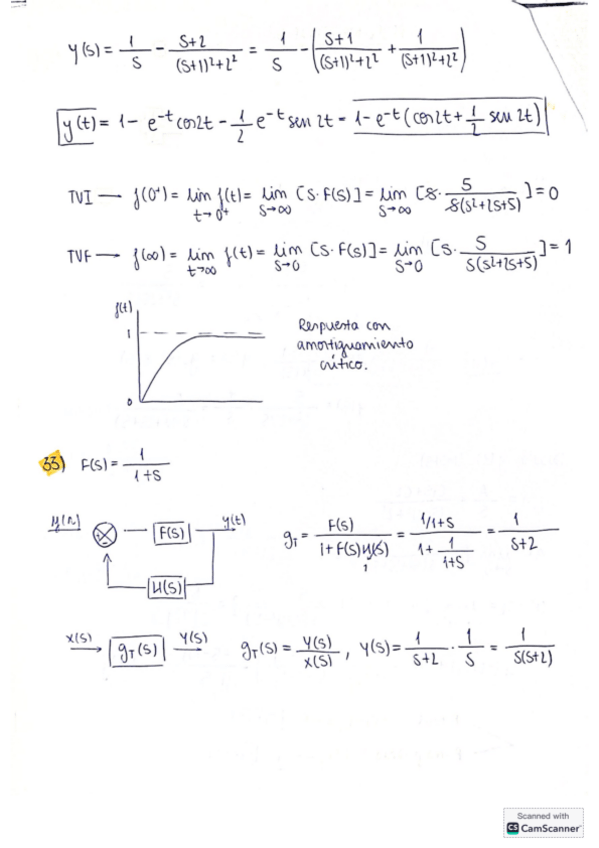 y(s) = 1/S - S+2/(S+1)²+2² = 1/S - (S+1/(S+1)²+2² + 1/(S+1)²+2²)
y(t) = 1 - e^-t cos2t - 1/2 e^-t sen 2t = 1 - e^-t (cos2t + 1/2 sen 2t)
TVI → f(0⁺) = lim t→0⁺ f(t) = lim S→∞ [S·F(S)] = lim S→∞ [S· 5/S(S²+2S+5)] = 0
TVF → f(∞) = lim t→∞ f(t) = lim S→0 [S·F(S)] = lim S→0 [S· 5/S(S²+2S+5)] = 1
f(t)
1
0
Respuesta con
amortiguamiento
crítico.
33) F(S) = 1/1+S
y(t)
F(S)
H(S)
g_T = F(S)/1+F(S)H(S) = 1/1+S / 1+ 1/1+S = 1/S+2
1
X(S) g_T(S) Y(S) g_T(S) = Y(S)/X(S), Y(S) = 1/S+2 · 1/S = 1/S(S+2)
Scanned with
CS CamScanner